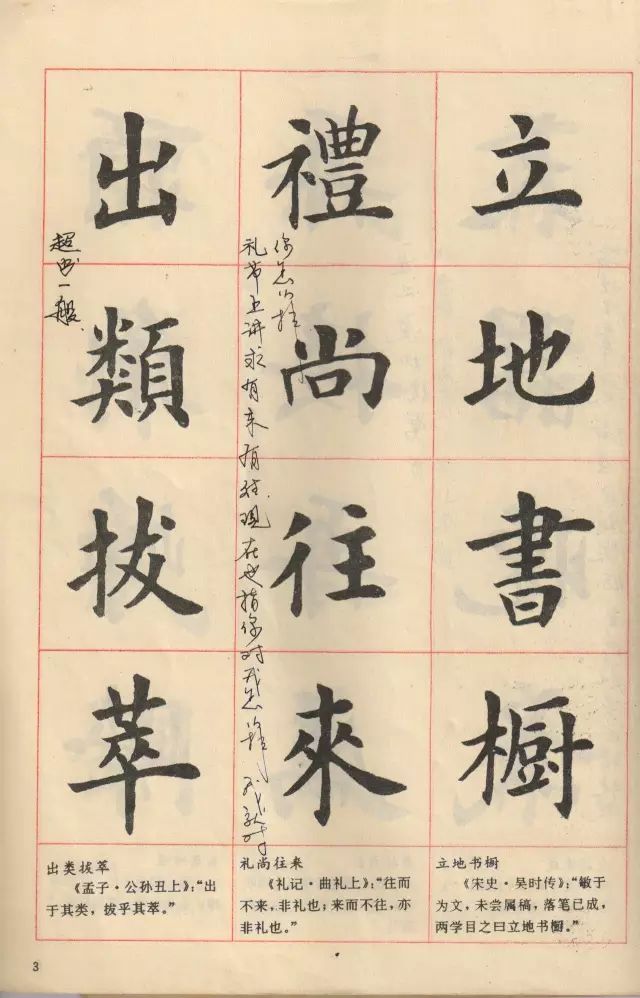 立地書橱
禮尚往來
你怎么样
礼节上讲求有来有往现在也指你对我怎样我就对
出類拔萃
超出一般
出类拔萃
《孟子·公孙丑上》：“出
于其类，拔乎其萃。”
礼尚往来
《礼记·曲礼上》：“往而
不来，非礼也；来而不往，亦
非礼也。”
立地书橱
《宋史·吴时传》：“敏于
为文，未尝属稿，落笔已成，
两学目之曰立地书橱。”
3